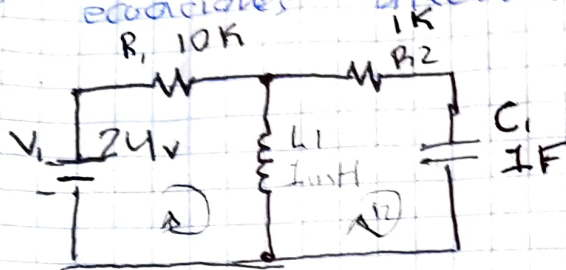 ecuaciones
R1 10K
1K
R2
V1 24v
L1
1mH
C1
1F
I2